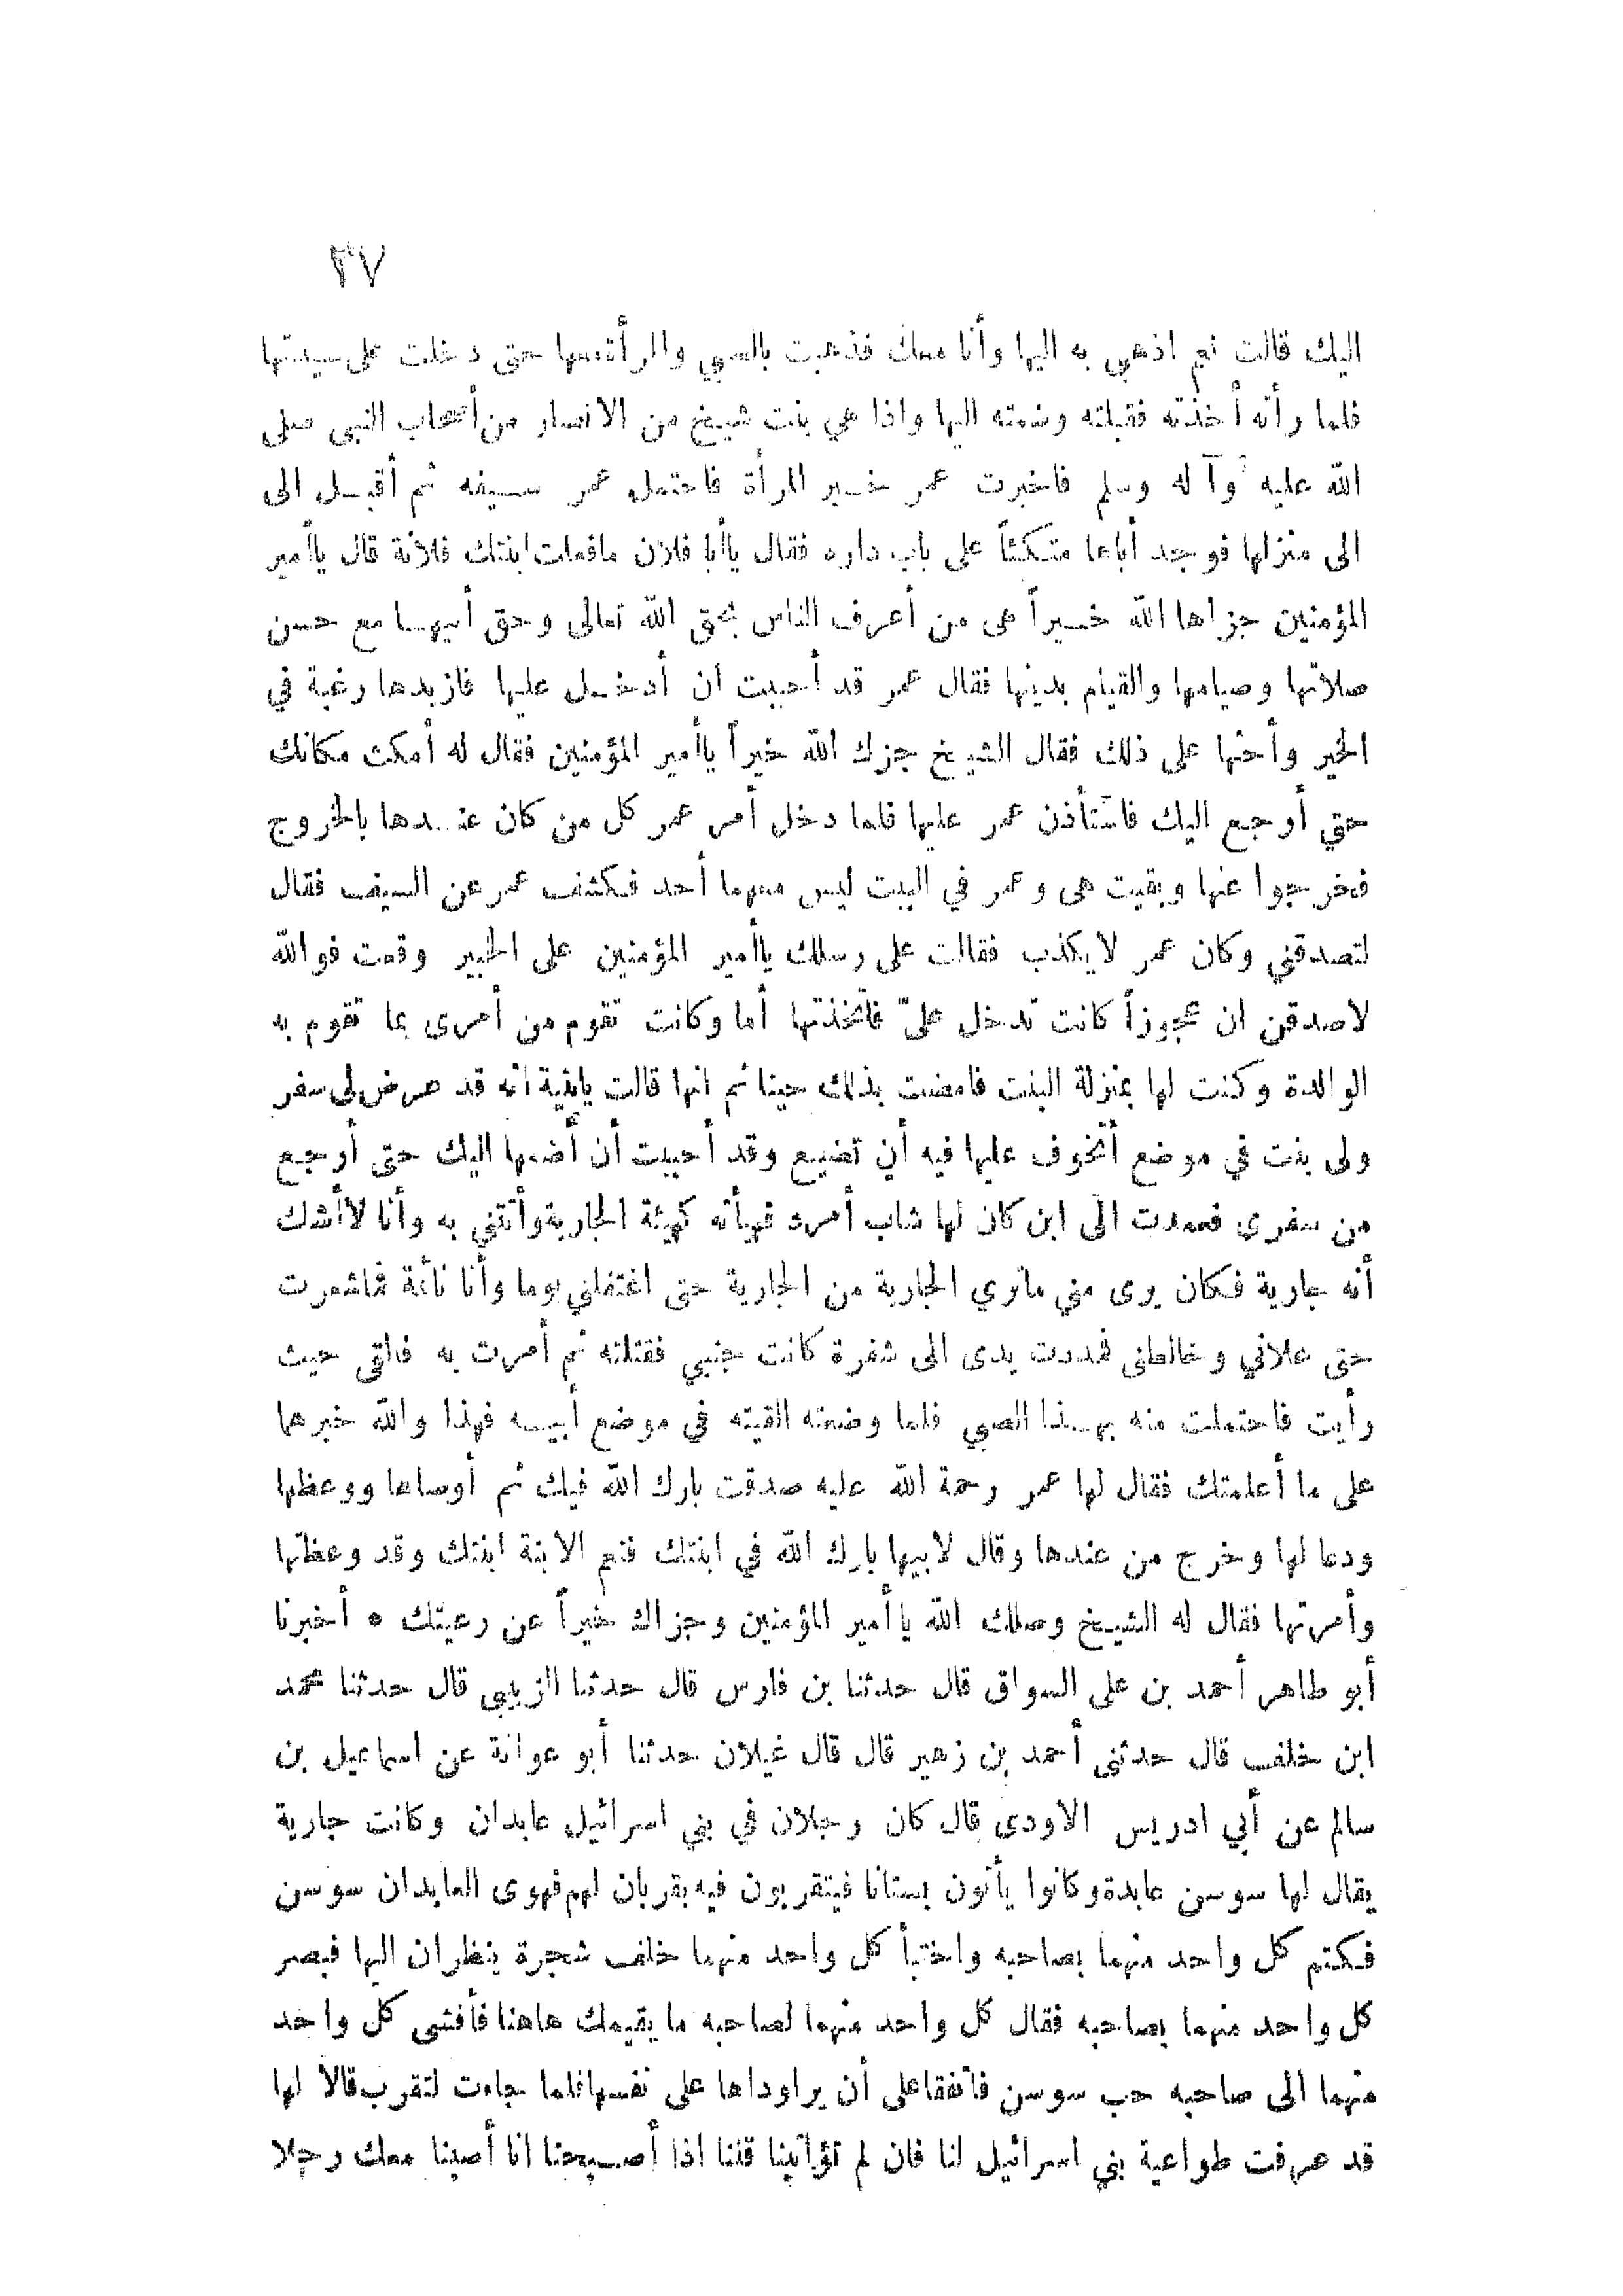 ٣٧
اليك قالت نعم اذهبي به اليها وأنا معك فذهبت بالصبي والمرأة معها حتى دخلت على سيدتها
فلما رأته أخذته فقبلته وضمته اليها واذا هي بنت شيخ من الانصار من أصحاب النبي صلى
الله عليه وآله وسلم فاخبرت عمر خبر المرأة فاحتمل عمر سيفه ثم أقبل الى
الى منزلها فوجد أباها متكئاً على باب داره فقال ياأبا فلان مافعلت ابنتك فلانة قال ياأمير
المؤمنين جزاها الله خيراً هى من أعرف الناس بحق الله تعالى وحق أبيها مع حسن
صلاتها وصيامها والقيام بدينها فقال عمر قد أحببت ان أدخل عليها فازيدها رغبة في
الخير وأحثها على ذلك فقال الشيخ جزك الله خيراً ياأمير المؤمنين فقال له أمكث مكانك
حتى أرجع اليك فاستأذن عمر عليها فلما دخل أمر عمر كل من كان عندها بالخروج
فخرجوا عنها وبقيت هى وعمر في البيت ليس معهما أحد فكشف عمر عن السيف فقال
لتصدقني وكان عمر لايكذب فقالت على رسلك ياأمير المؤمنين على الخبير وقعت فوالله
لاصدقن ان عجوزاً كانت تدخل علىّ فاتخذتها أما وكانت تقوم من أمرى بما تقوم به
الوالدة وكنت لها بمنزلة البنت فامضت بذلك حينا ثم انها قالت يابنية انه قد عرض لى سفر
ولى بنت في موضع أتخوف عليها فيه أن تضيع وقد أحببت أن أضمها اليك حتى أرجع
من سفرى فعمدت الى ابن كان لها شاب أمرد فهيأته كهيئة الجارية وأتتني به وأنا لاأشك
أنه جارية فكان يرى مني ماترى الجارية من الجارية حتى اغتفلني يوما وأنا نائمة فما شعرت
حتى علاني وخالطنى فمددت يدى الى شفرة كانت بجنبي فقتلته ثم أمرت به فالقى حيث
رأيت فاحتملت منه بهذا الصبي فلما وضعته القيته في موضع أبيه فهذا والله خبرها
على ما أعلمتك فقال لها عمر رحمة الله عليه صدقت بارك الله فيك ثم أوصاها ووعظها
ودعا لها وخرج من عندها وقال لابيها بارك الله في ابنتك فنعم الابنة ابنتك وقد وعظتها
وأمرتها فقال له الشيخ وصلك الله ياأمير المؤمنين وجزاك خيراً عن رعيتك ٭ أخبرنا
أبو طاهر أحمد بن على السواق قال حدثنا بن فارس قال حدثنا الزينبي قال حدثنا محمد
ابن خلف قال حدثنى أحمد بن زهير قال قال غيلان حدثنا أبو عوانة عن اسماعيل بن
سالم عن أبي ادريس الاودى قال كان رجلان في بني اسرائيل عابدان وكانت جارية
يقال لها سوسن عابدة وكانوا يأتون بستانا فيتقربون فيه بقربان لهم فهوى العابدان سوسن
فكتم كل واحد منهما بصاحبه واختبأ كل واحد منهما خلف شجرة ينظران اليها فبصر
كل واحد منهما بصاحبه فقال كل واحد منهما لصاحبه مايقيمك هاهنا فأفشى كل واحد
منهما الى صاحبه حب سوسن فاتفقا على أن يراوداها على نفسها فلما جاءت لتقرب قالا لها
قد عرفت طواعية بني اسرائيل لنا فان لم تؤاتينا قلنا اذا أصبحنا انا أصبنا معك رجلا